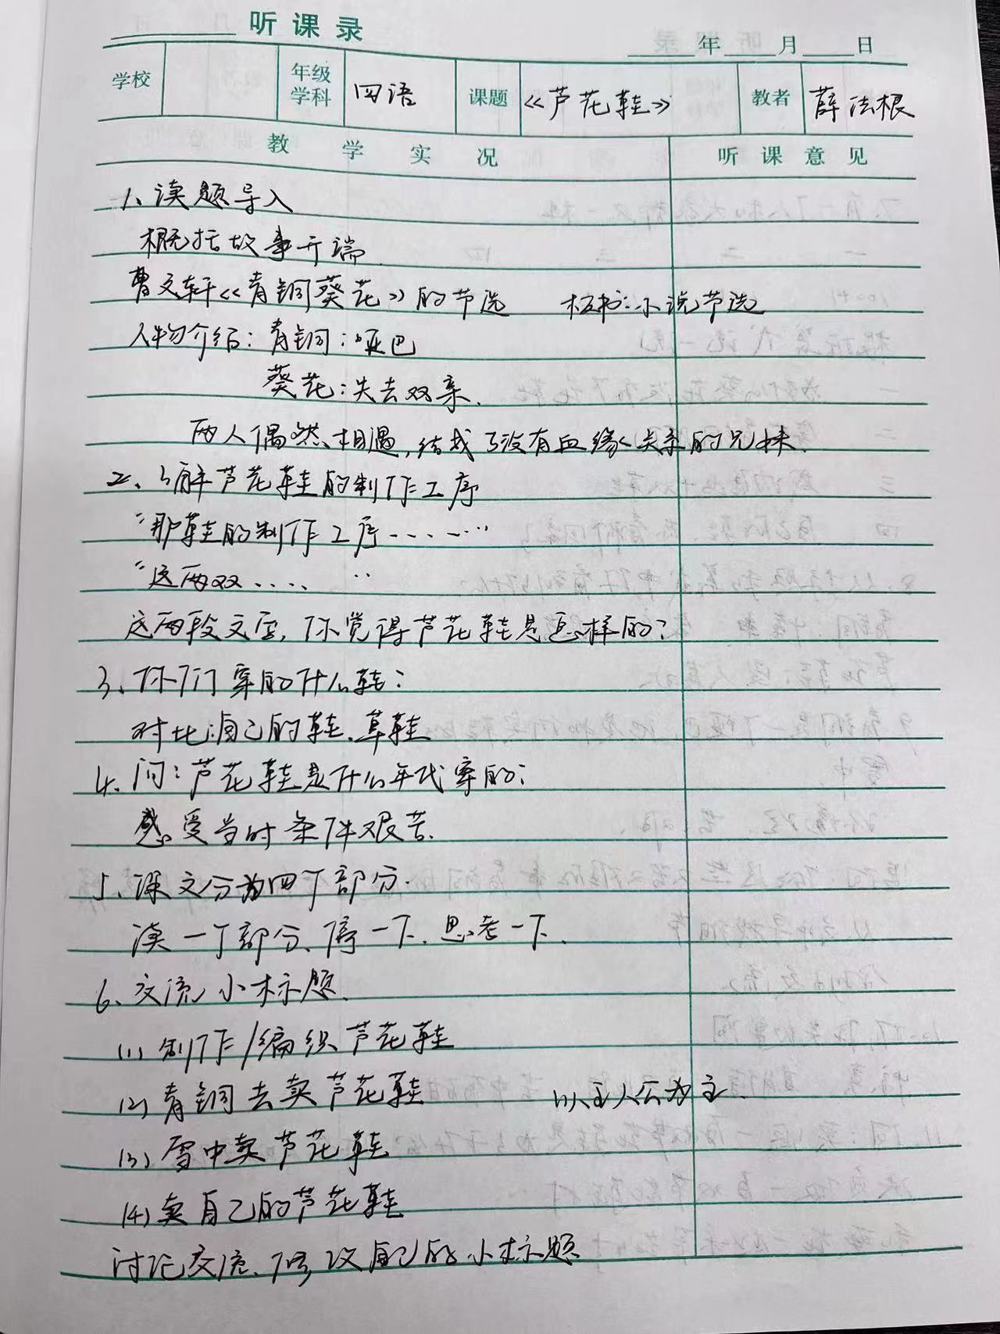 听课录
年 月 日
学校 年级学科 四语 课题 《芦花鞋》 教者 薛法根
教学实况 听课意见
1、读题导入
概括故事开端
曹文轩《青铜葵花》的节选 板书:小说节选
人物介绍:青铜:哑巴
葵花:失去双亲.
两人偶然相遇,结成了没有血缘关系的兄妹.
2、了解芦花鞋的制作工序
"那鞋的制作工序......"
"这两双...."
这两段文字,你觉得芦花鞋是怎样的?
3、你们穿的什么鞋?
对比:自己的鞋、草鞋
4、问:芦花鞋是什么年代穿的?
感受当时条件艰苦.
5、课文分为四个部分.
读一个部分、停一下、思考一下.
6、交流小标题.
(1)制作/编织芦花鞋
(2)青铜去卖芦花鞋 以主人公为主.
(3)雪中卖芦花鞋
(4)卖自己的芦花鞋
讨论交流、修改自己的小标题